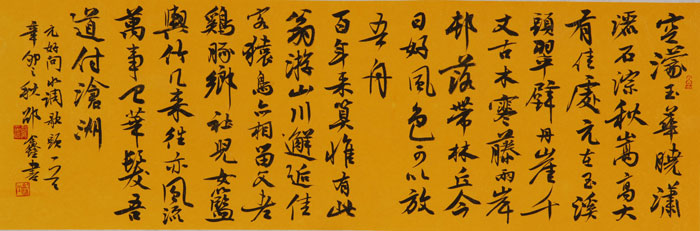 空濛玉華曉瀟
灑石淙秋嵩高大
有佳處元在玉溪
頭翠壁丹崖千
丈古木寒藤兩岸
邨落帶林丘今
日好風色可以放
吾舟
百年来算惟有此
翁游山川邂逅佳
客猿鳥亦相留父老
鷄豚鄉社兒女籃
輿竹几来往亦風流
萬事已華髮吾
道付滄洲
元好问水调歌头一首
辛卯之秋邵鑫書